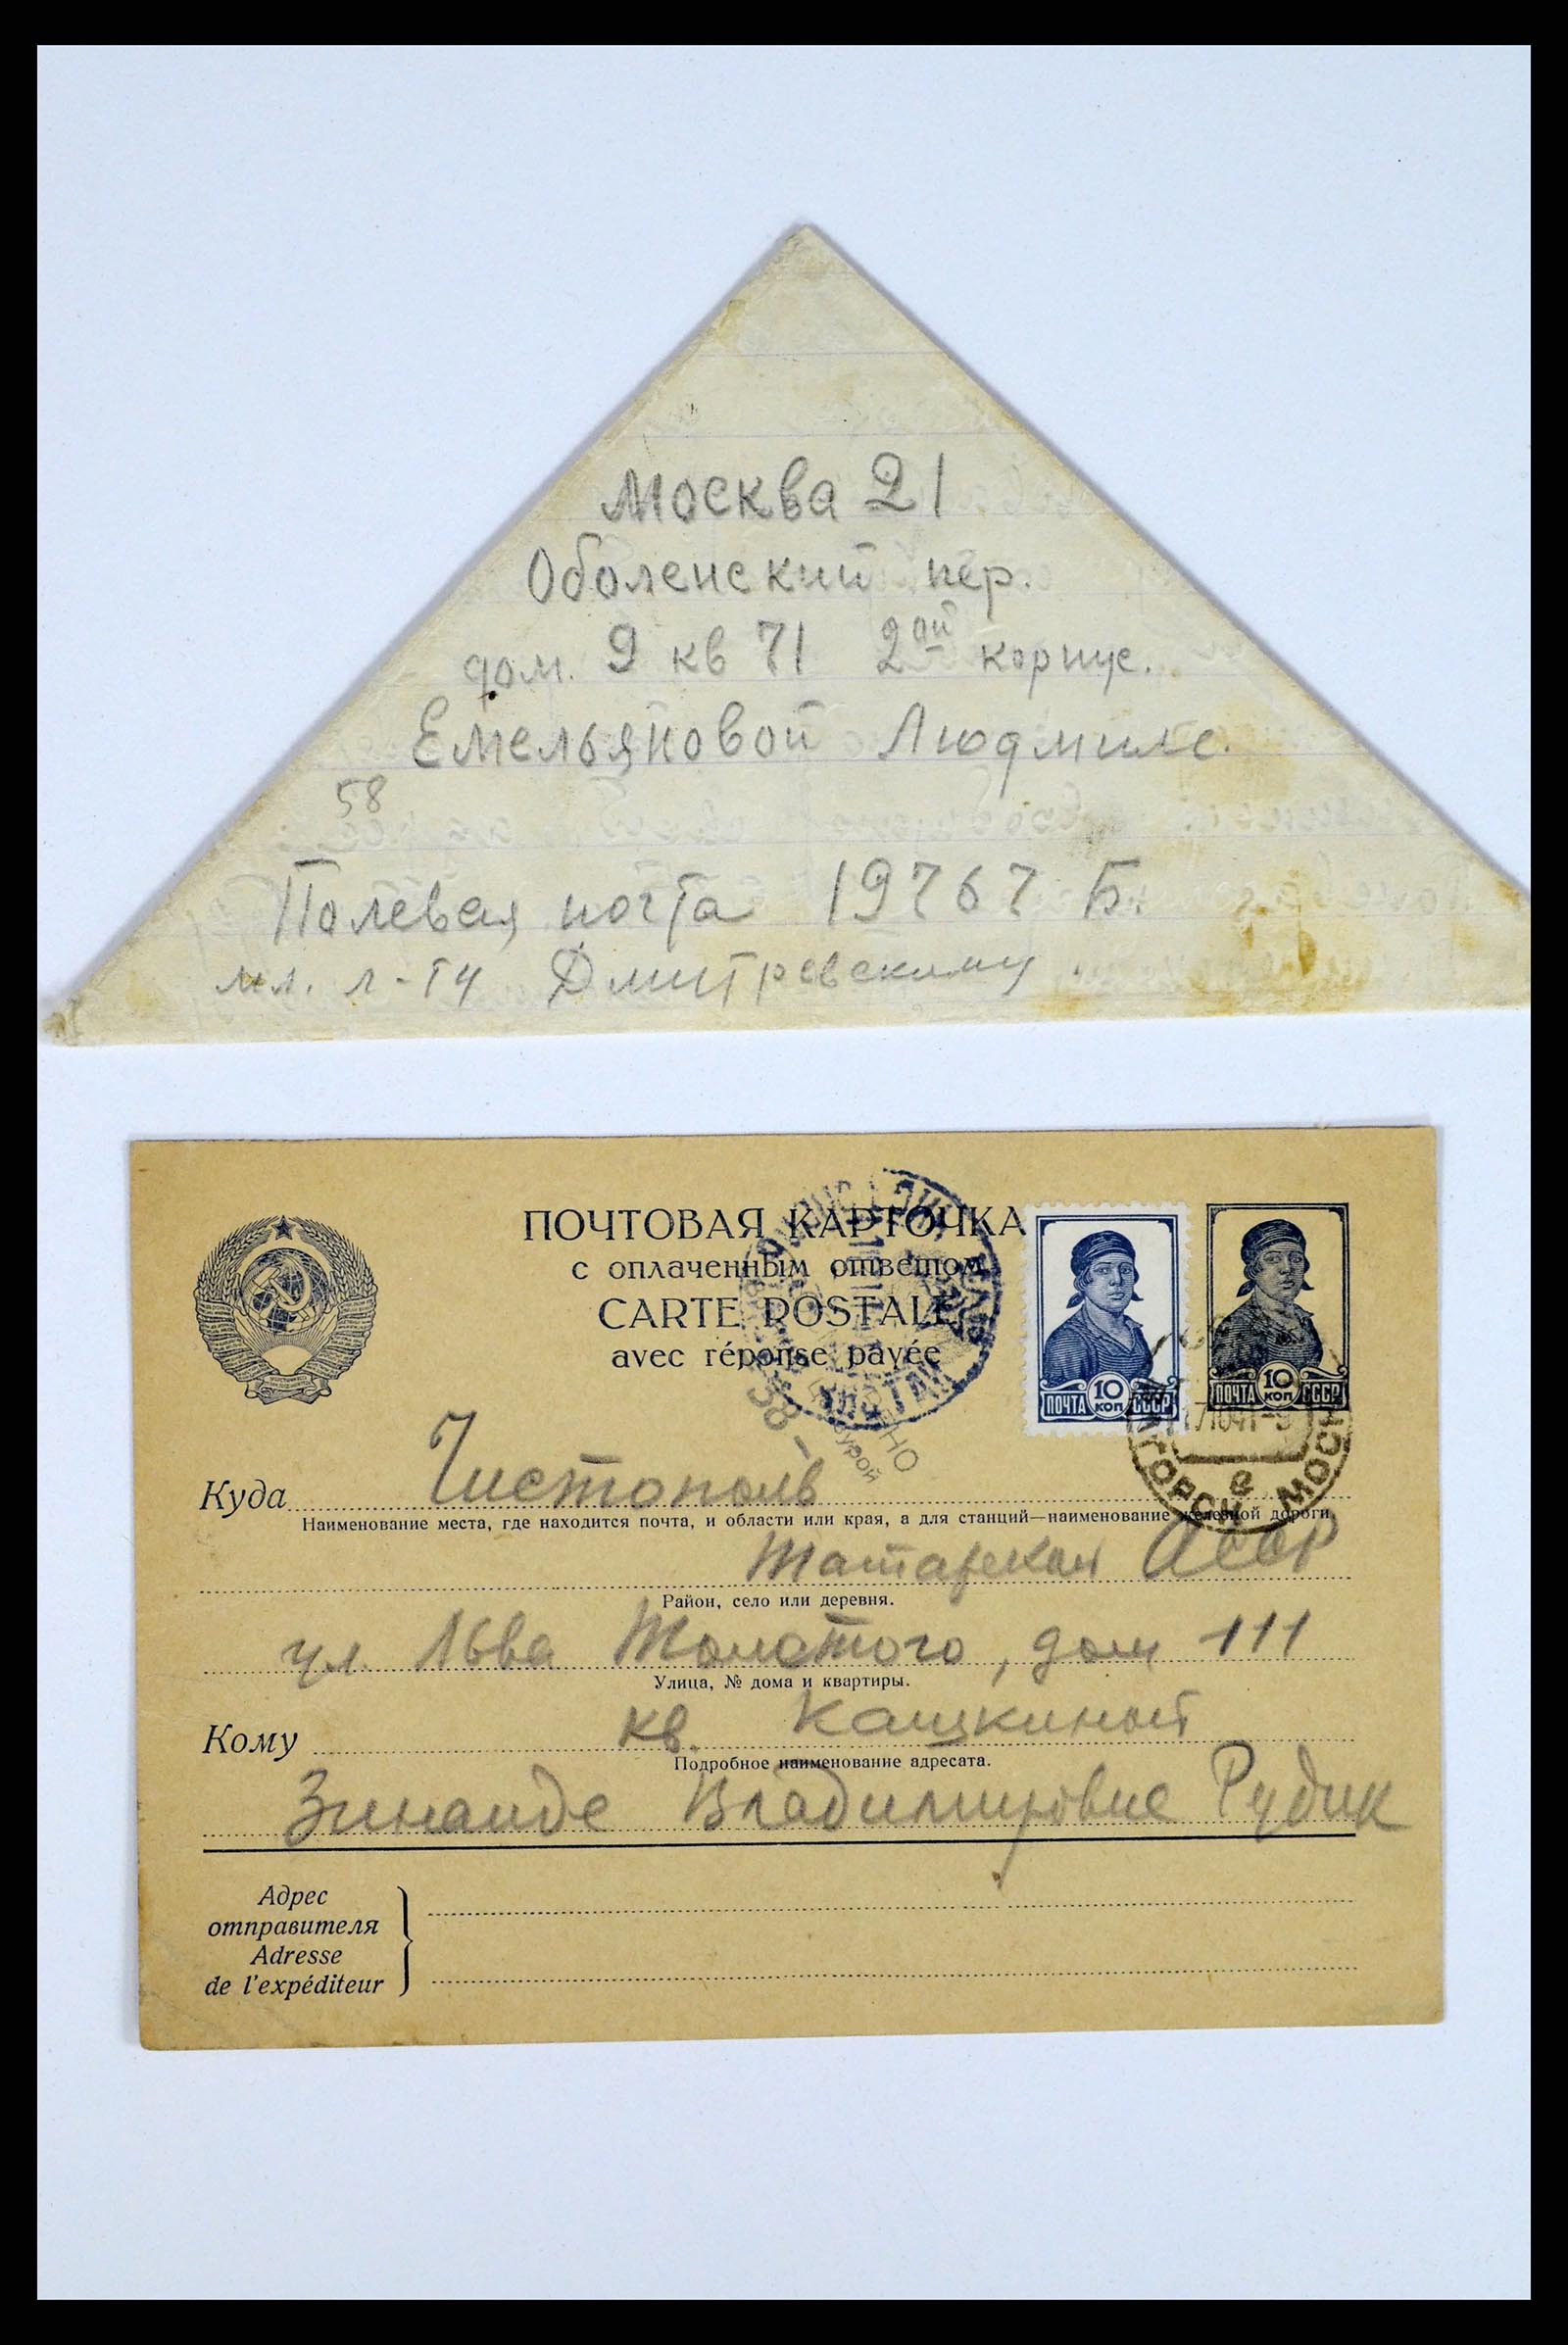 Москва 21
Оболенский пер.
дом. 9 кв 71 2ой корпус.
Емельяновой Людмиле.
58
Полевая почта 19767 Б.
мл. л-ту Дмитревскому.
ПОЧТОВАЯ КАРТОЧКА
с оплаченным ответом
CARTE POSTALE
avec réponse payée
ПОЧТА 10 КОП СССР
ПОЧТА 10 КОП СССР
Куда Чистополь
Наименование места, где находится почта, и области или края, а для станций—наименование железной дороги.
Татарская АССР
Район, село или деревня.
ул. Льва Толстого, дом 111
Улица, № дома и квартиры.
Кому кв. Кашкиной
Подробное наименование адресата.
Зинаиде Владимировне Рудик
Адрес
отправителя
Adresse
de l'expéditeur